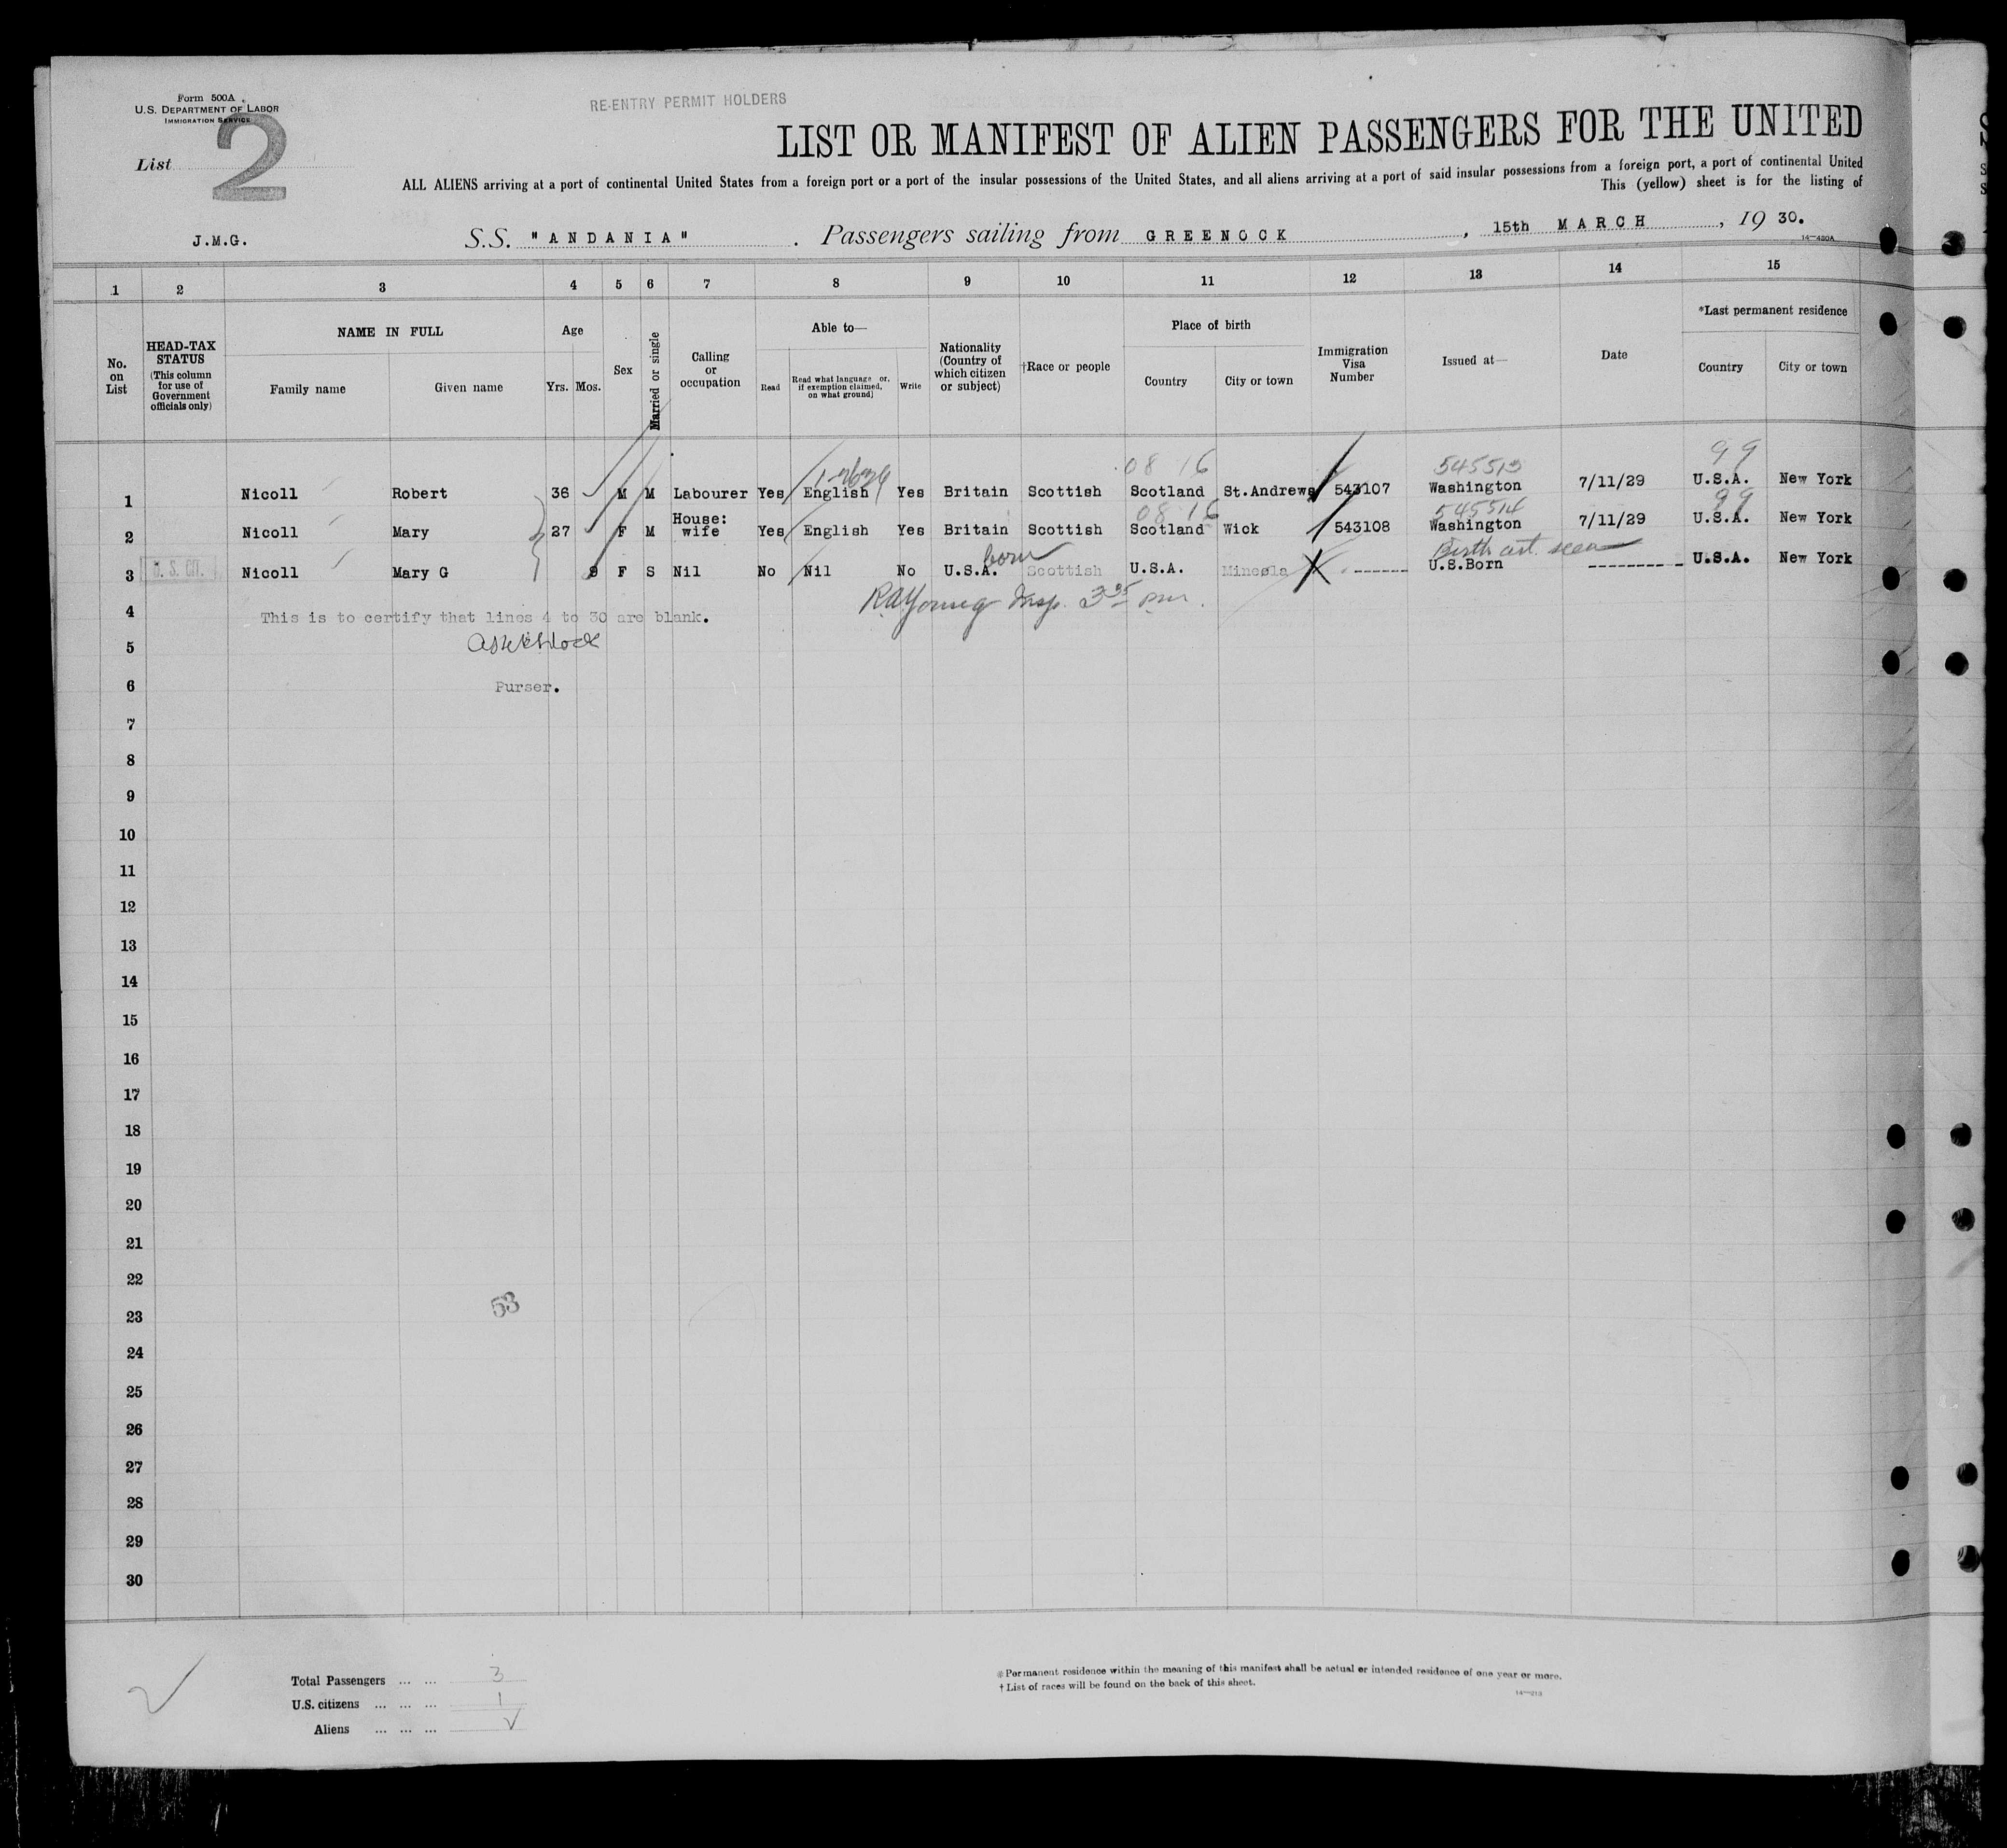 Form 500A
U.S. DEPARTMENT OF LABOR
IMMIGRATION SERVICE
RE-ENTRY PERMIT HOLDERS
List 2
LIST OR MANIFEST OF ALIEN PASSENGERS FOR THE UNITED
ALL ALIENS arriving at a port of continental United States from a foreign port or a port of the insular possessions of the United States, and all aliens arriving at a port of said insular possessions from a foreign port, a port of continental United
This (yellow) sheet is for the listing of
J.M.G. S.S. "ANDANIA". Passengers sailing from GREENOCK, 15th MARCH, 19 30.
14—430A
1 2 3 4 5 6 7 8 9 10 11 12 13 14 15
No. on List
HEAD-TAX STATUS (This column for use of Government officials only)
NAME IN FULL
Family name Given name
Age
Yrs. Mos.
Sex
Married or single
Calling or occupation
Able to—
Read
Read what language or, if exemption claimed, on what ground
Write
Nationality (Country of which citizen or subject)
†Race or people
Place of birth
Country City or town
Immigration Visa Number
Issued at—
Date
*Last permanent residence
Country City or town
08 16 545513 99
1 Nicoll Robert 36 M M Labourer Yes English Yes Britain Scottish Scotland St.Andrews 543107 Washington 7/11/29 U.S.A. New York
08 16 545514 99
2 Nicoll Mary 27 F M House: wife Yes English Yes Britain Scottish Scotland Wick 543108 Washington 7/11/29 U.S.A. New York
born Birth cert. seen
3 U.S. CIT. Nicoll Mary G 9 F S Nil No Nil No U.S.A. Scottish U.S.A. Mineola ------ U.S.Born ---------- U.S.A. New York
RA Young Insp. 3 35 pm.
4 This is to certify that lines 4 to 30 are blank.
5
6 Purser.
7
8
9
10
11
12
13
14
15
16
17
18
19
20
21
22
53
23
24
25
26
27
28
29
30
Total Passengers ... ... 3
U.S. citizens ... ... ... 1
Aliens ... ... ...
*Permanent residence within the meaning of this manifest shall be actual or intended residence of one year or more.
†List of races will be found on the back of this sheet.
14—213